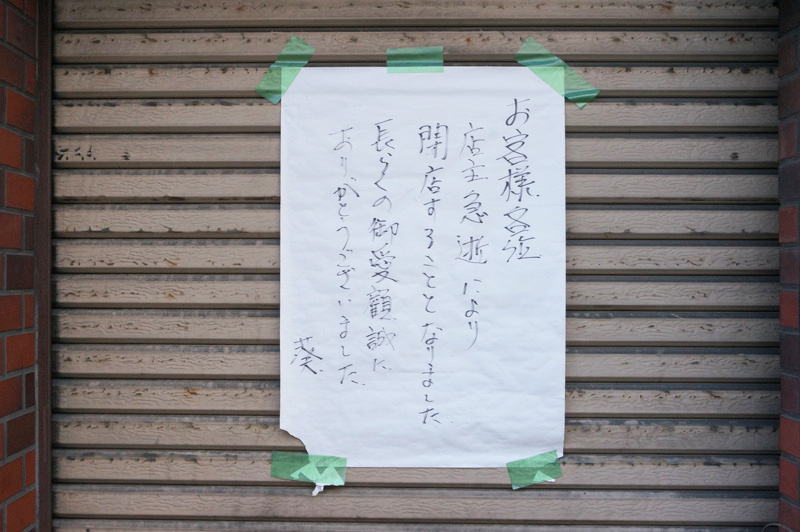 お客様各位
店主急逝により
閉店することとなりました
長らくの御愛顧誠に
ありがとうございました
葵